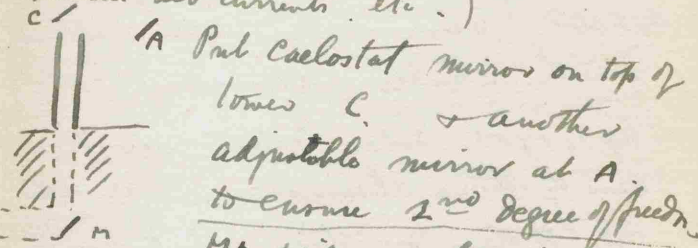 currents etc.)
C
A Put Caelostat mirror on top of
tower C. & another
adjustable mirror at A.
to ensure 2nd degree of freedm
M